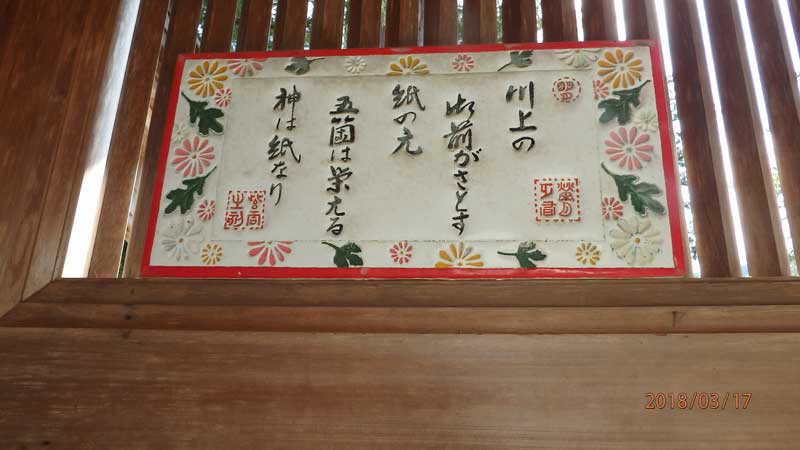 川上の
御前がさとす
紙の元
五箇は栄える
神は紙なり
2018/03/17